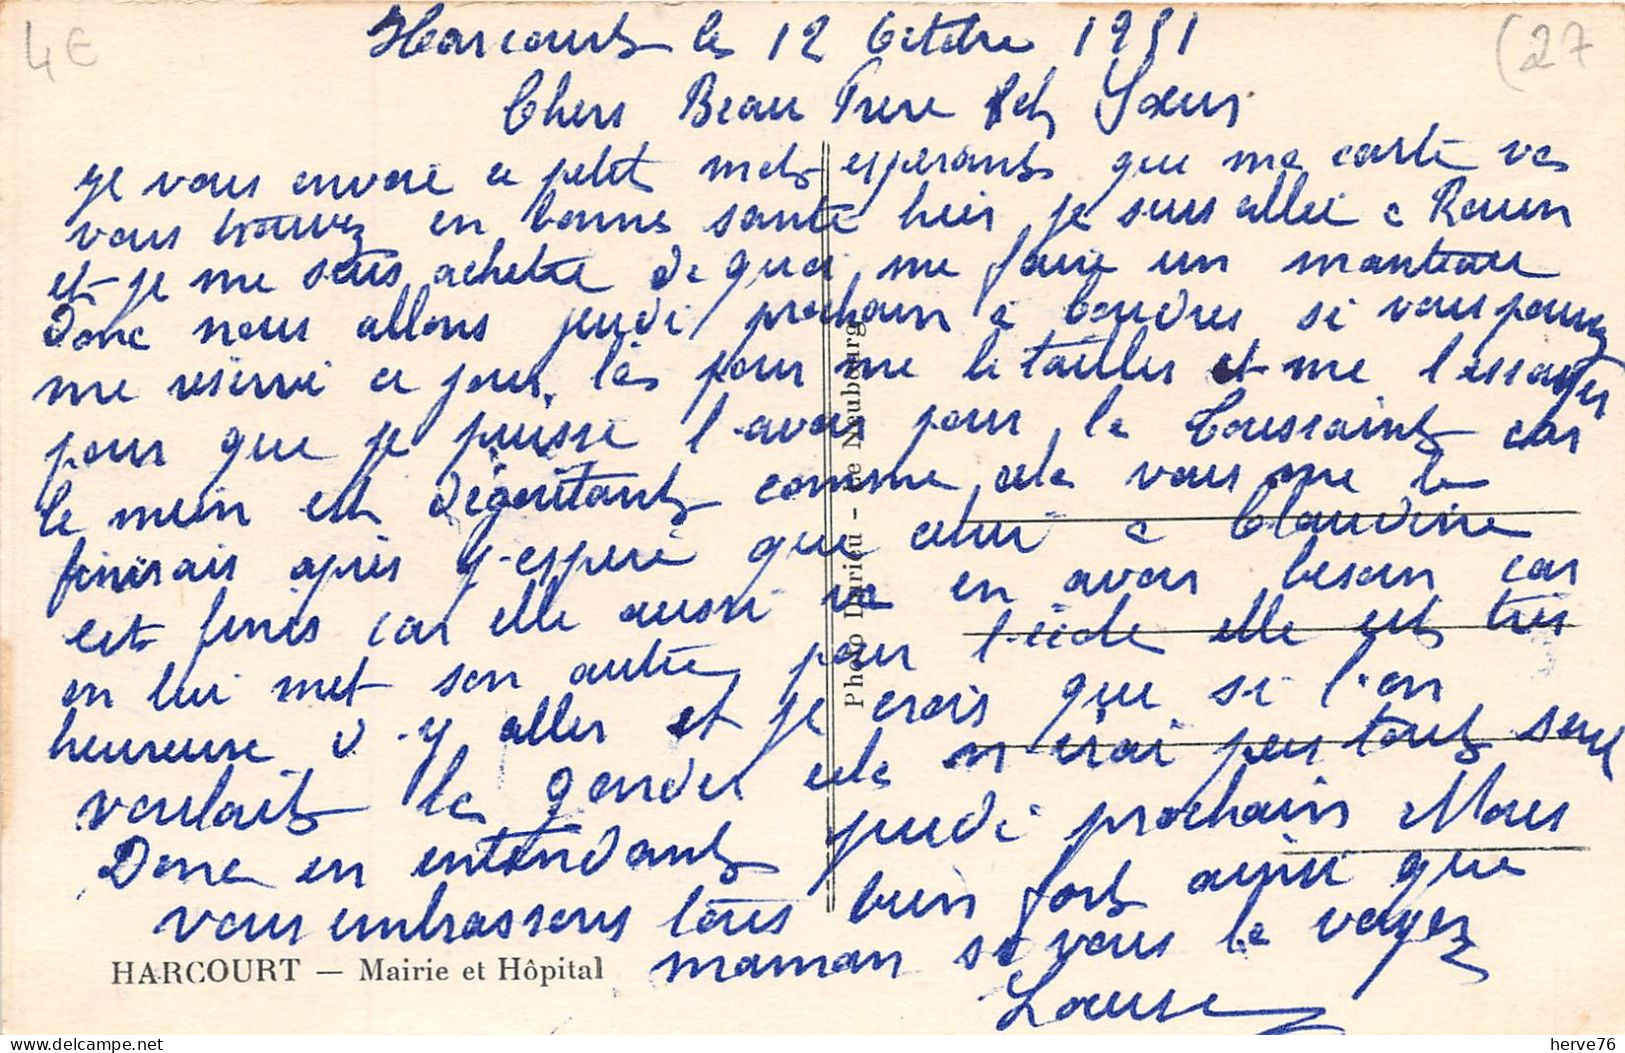 4€
(27
Harcourt le 12 Octobre 1951
Chers Beau Frere et Sœur
je vous envoie ce petit mots esperants que ma carte va
vous trouvez en bonne santé hier je suis allée a Rouen
et je me suis acheté de quoi me faire un manteau
Donc nous allons jeudi prochain a Coudres si vous pouvez
me réservé ce jour là pour me le tailler et me l'essayer
pour que je puisse l'avoir pour la Toussaint car
le mien est dégoutants comme cela vous me le
finirais après j'espère que celui a Claudine
est finis car elle aussi va en avoir besoin car
on lui met son autre pour l'école elle est très
heureuse d'y aller et je crois que si l'on
voulait la garder cela n'irai pas tout seul
Donc en entendant jeudi prochain Nous
vous embrassons tous bien fort ainsi que
maman si vous la voyez
Louise
HARCOURT — Mairie et Hôpital
Photo Durieu - Le Neubourg
herve76